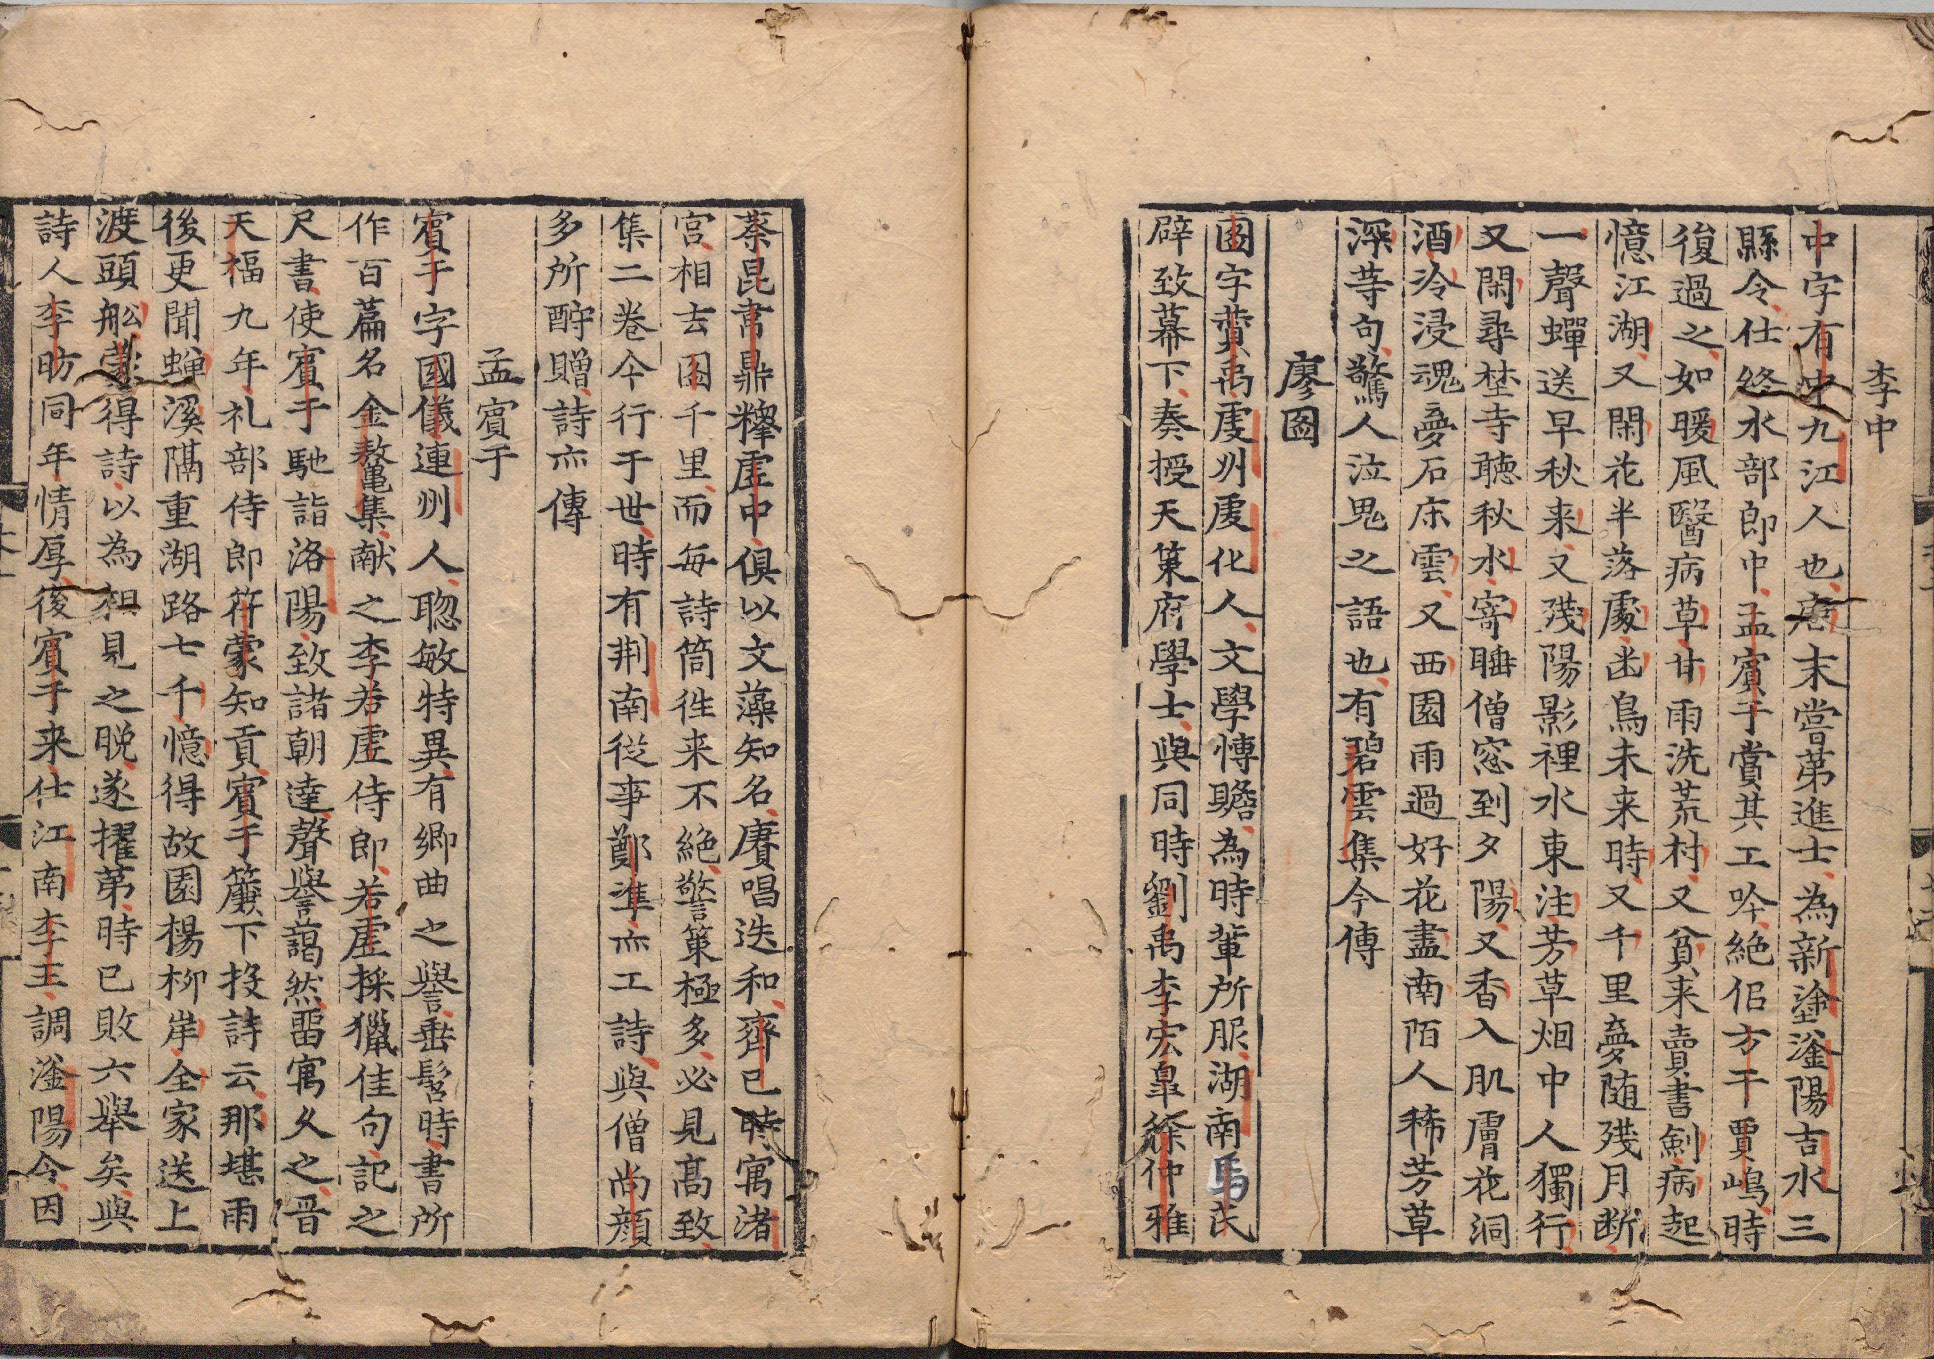 李中
中字有中九江人也唐末嘗第進士為新塗滏陽吉水三
縣令仕終水部郎中孟賓于賞其工吟絶侶方干賈嶋時
復過之如暖風醫病草甘雨洗荒村又貧来賣書劍病起
憶江湖又閑花半落處幽鳥未来時又千里夢随殘月断
一聲蟬送早秋来又殘陽影裡水東注芳草烟中人獨行
又閑尋埜寺聴秋水寄睡僧窓到夕陽又香入肌膚花洞
酒冷浸魂夢石床雲又西園雨過好花盡南陌人稀芳草
深䒭句驚人泣鬼之語也有碧雲集今傳
廖圖
圖字賛禹䖍州䖍化人文學愽贍為時輩所服湖南馬氏
辟致幕下奏授天䇿府學士與同時劉禹李宏臯徐仲雅
蔡昆韋鼎釋虗中俱以文藻知名賡唱迭和齊已時寓渚
宮相去圖千里而每詩筒徃来不絶警策極多必見髙致
集二巻今行于世時有荆南從事鄭凖亦工詩與僧尚顔
多所酧贈詩亦傳
孟賓于
賓于字國儀連州人聦敏特異有郷曲之譽垂髫時書所
作百篇名金鰲集献之李若虗侍郎若虗採獵佳句記之
尺書使賓于馳詣洛陽致諸朝達聲譽藹然畱寓久之晋
天福九年礼部侍郎符蒙知貢賓于簾下投詩云那堪雨
後更聞蟬溪隔重湖路七千憶得故園楊柳岸全家送上
渡頭舩蒙得詩以為相見之晩遂擢第時已敗六舉矣與
詩人李昉同年情厚後賓于来仕江南李主調滏陽令因